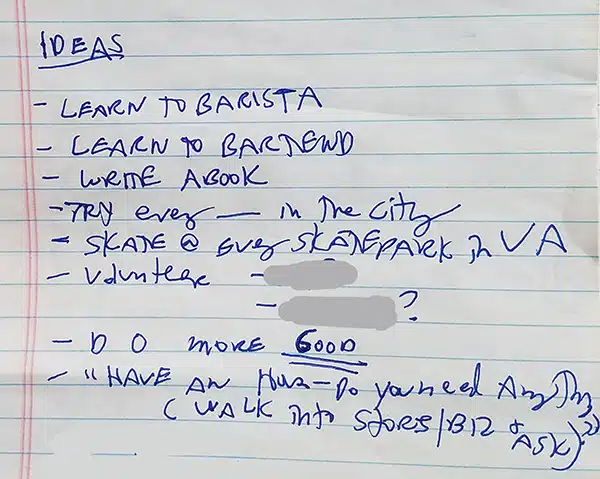 IDEAS
- LEARN TO BARISTA
- LEARN TO BARTEND
- WRITE A BOOK
- TRY every — in The City
- SKATE @ every SKATEPARK in VA
- Volunteer -
- ?
- DO more GOOD
- "HAVE AN Hour - Do you need AnyThing
( WALK into STORES/BIZ + ASK)?"